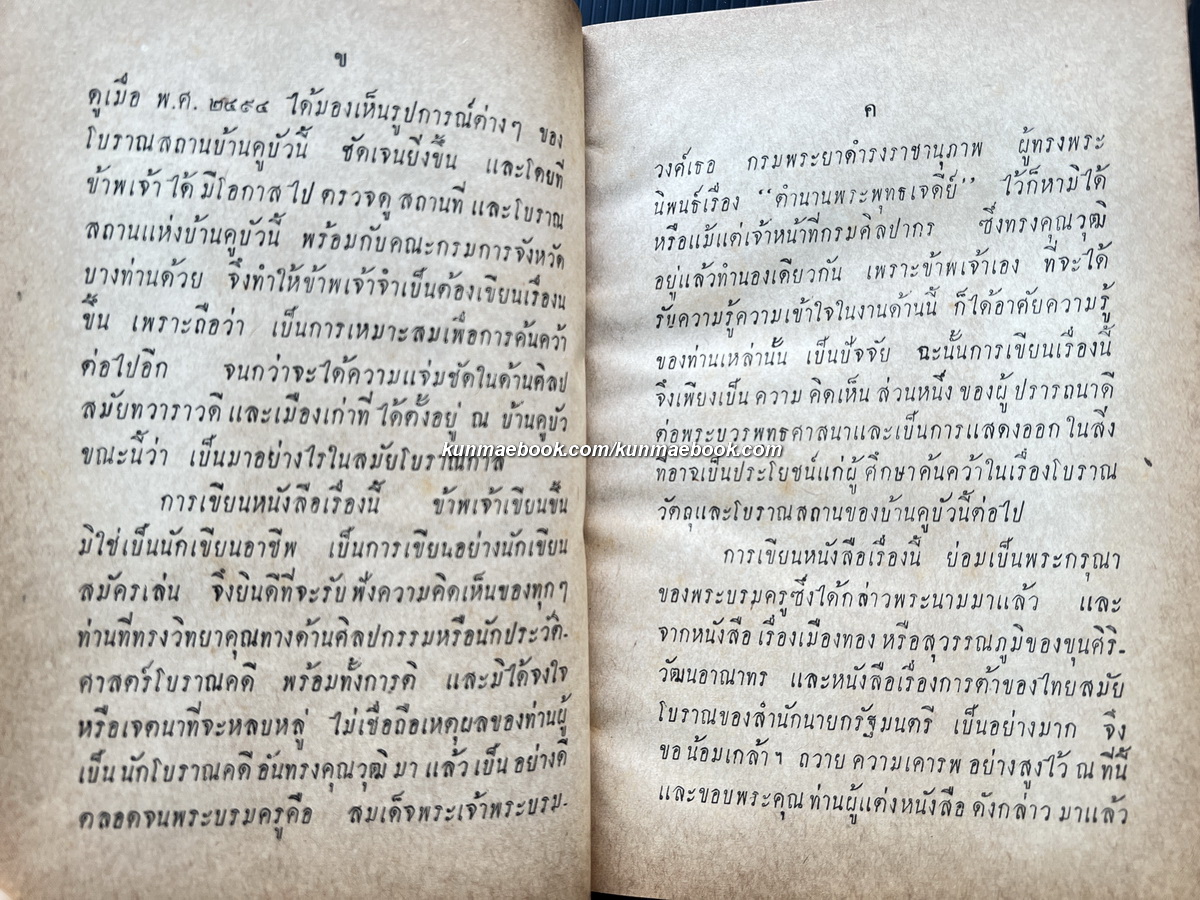 ข
ดูเมื่อ พ.ศ. ๒๔๙๔ ได้มองเห็นรูปการณ์ต่างๆ ของ
โบราณสถานบ้านคูบัวนี้ ชัดเจนยิ่งขึ้น และโดยที่
ข้าพเจ้าได้มีโอกาสไปตรวจดูสถานที่และโบราณ
สถานแห่งบ้านคูบัวนี้ พร้อมกับคณะกรมการจังหวัด
บางท่านด้วย จึงทำให้ข้าพเจ้าจำเป็นต้องเขียนเรื่องน
ขึ้น เพราะถือว่า เป็นการเหมาะสมเพื่อการค้นคว้า
ต่อไปอีก จนกว่าจะได้ความแจ่มชัดในด้านศิลป
สมัยทวาราวดีและเมืองเก่าที่ได้ตั้งอยู่ ณ บ้านคูบัว
ขณะนี้ว่า เป็นมาอย่างไรในสมัยโบราณกาล
การเขียนหนังสือเรื่องนี้ ข้าพเจ้าเขียนขึ้น
มิใช่เป็นนักเขียนอาชีพ เป็นการเขียนอย่างนักเขียน
สมัครเล่น จึงยินดีที่จะรับฟังความคิดเห็นของทุกๆ
ท่านที่ทรงวิทยาคุณทางด้านศิลปกรรมหรือนักประวัติ-
ศาสตร์โบราณคดี พร้อมทั้งการติ และมิได้จงใจ
หรือเจตนาที่จะหลบหลู่ ไม่เชื่อถือเหตุผลของท่านผู้
เป็นนักโบราณคดีอันทรงคุณวุฒิมาแล้วเป็นอย่างดี
ตลอดจนพระบรมครูคือ สมเด็จพระเจ้าพระบรม-
ค
วงศ์เธอ กรมพระยาดำรงราชานุภาพ ผู้ทรงพระ
นิพนธ์เรื่อง “ตำนานพระพุทธเจดีย์” ไว้ก็หามิได้
หรือแม้แต่เจ้าหน้าที่กรมศิลปากร ซึ่งทรงคุณวุฒิ
อยู่แล้วทำนองเดียวกัน เพราะข้าพเจ้าเอง ที่จะได้
รับความรู้ความเข้าใจในงานด้านนี้ ก็ได้อาศัยความรู้
ของท่านเหล่านั้น เป็นปัจจัย ฉะนั้นการเขียนเรื่องนี้
จึงเพียงเป็นความคิดเห็นส่วนหนึ่งของผู้ปรารถนาดี
ต่อพระบวรพุทธศาสนาและเป็นการแสดงออกในสิ่ง
kunmaebook.com/kunmaebook.com
ที่อาจเป็นประโยชน์แก่ผู้ศึกษาค้นคว้าในเรื่องโบราณ
วัตถุและโบราณสถานของบ้านคูบัวนี้ต่อไป
การเขียนหนังสือเรื่องนี้ ย่อมเป็นพระกรุณา
ของพระบรมครูซึ่งได้กล่าวพระนามมาแล้ว และ
จากหนังสือเรื่องเมืองทองหรือสุวรรณภูมิของขุนศิริ-
วัฒนอาณาทร และหนังสือเรื่องการค้าของไทยสมัย
โบราณของสำนักนายกรัฐมนตรี เป็นอย่างมาก จึง
ขอน้อมเกล้าฯ ถวายความเคารพอย่างสูงไว้ ณ ที่นี้
และขอบพระคุณท่านผู้แต่งหนังสือดังกล่าวมาแล้ว